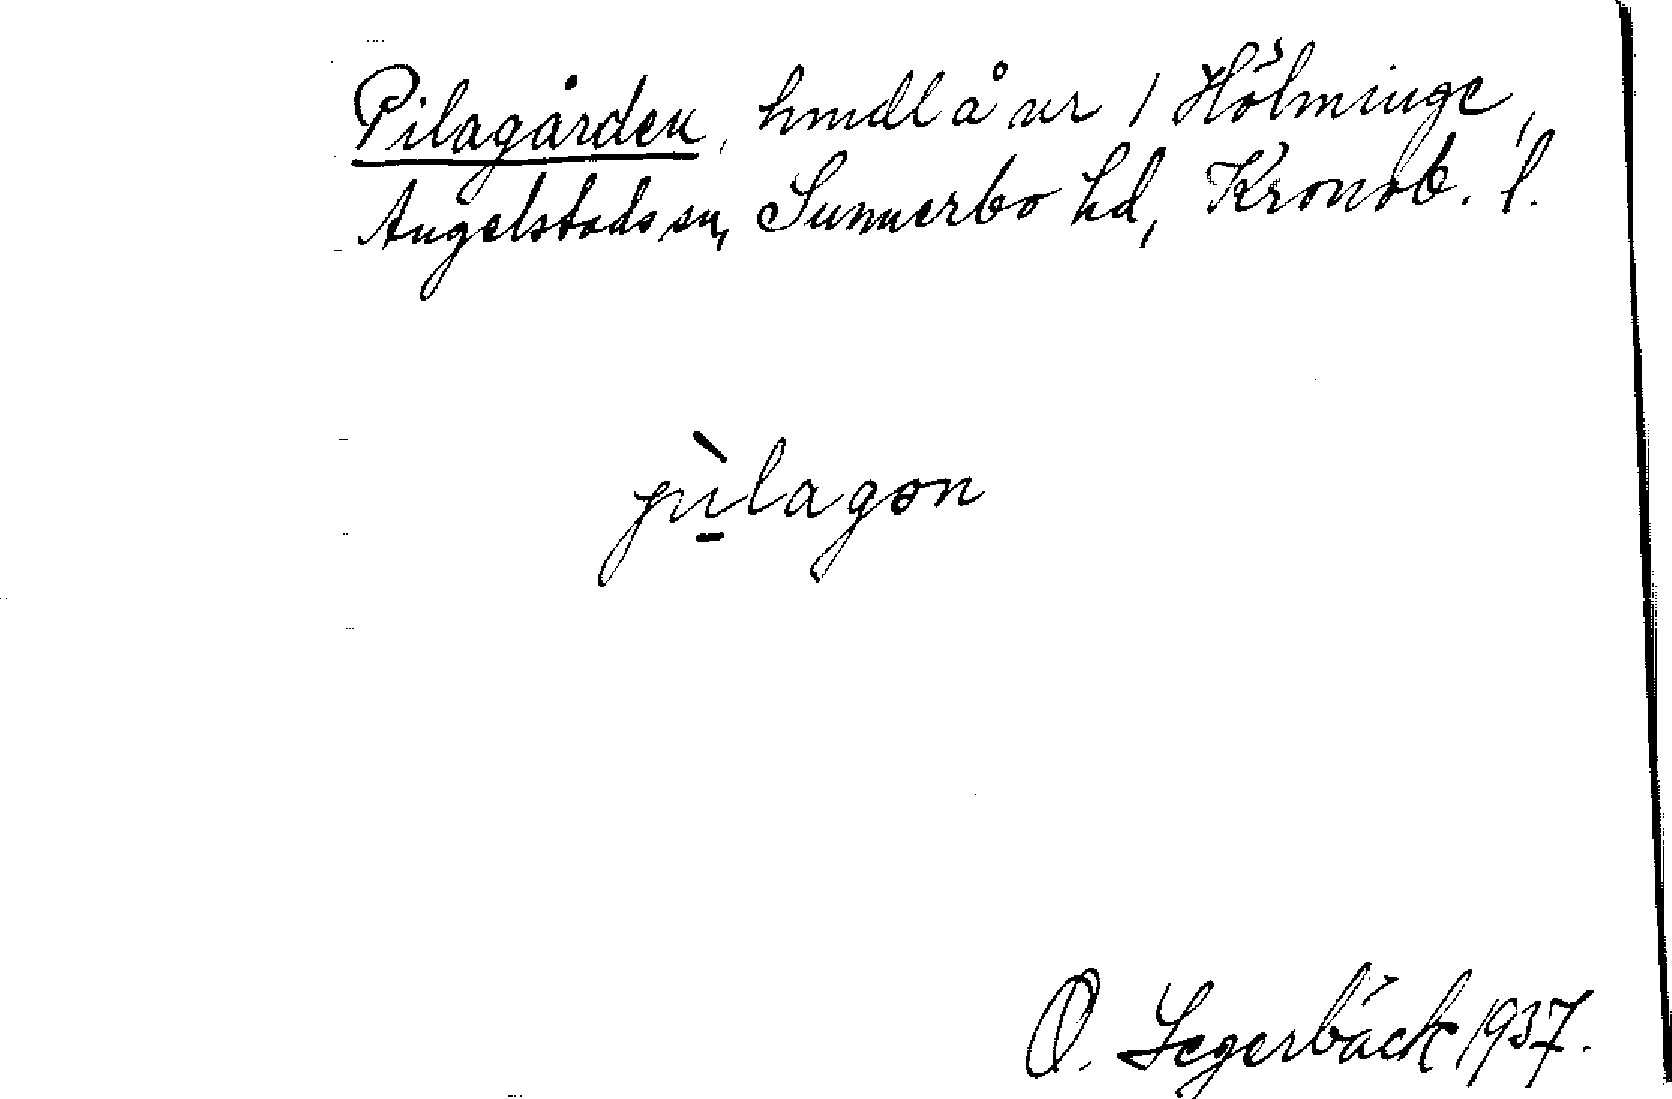 Pilagården, hmdl å nr 1 Hölminge,
Angelstads sn, Sunnerbo hd, Kronob. l.
pìlagɵn
O. Segerbäck 1937.